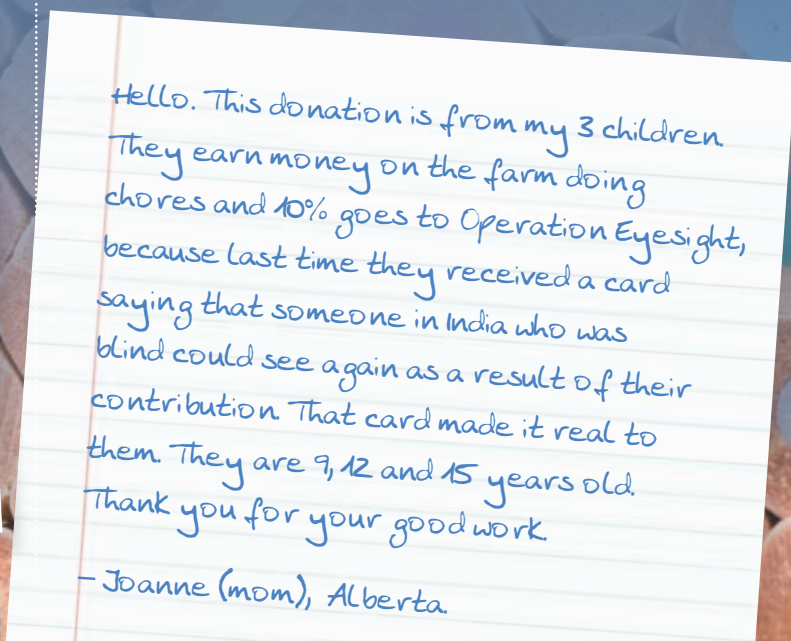 Hello. This donation is from my 3 children.
They earn money on the farm doing
chores and 10% goes to Operation Eyesight,
because last time they received a card
saying that someone in India who was
blind could see again as a result of their
contribution. That card made it real to
them. They are 9, 12 and 15 years old.
Thank you for your good work.
– Joanne (mom), Alberta.